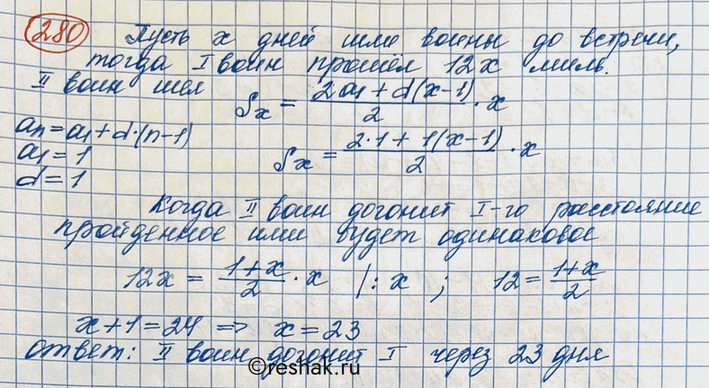 280 Пусть x дней шли воины до встречи,
тогда I воин прошёл 12x миль.
II воин шел Sx = (2a₁ + d(x-1))/2 · x
aₙ = a₁ + d·(n-1)
a₁ = 1
d = 1
Sx = (2·1 + 1(x-1))/2 · x
Когда II воин догонит I-го расстояние
пройденное ими будет одинаковое
12x = (1+x)/2 · x |: x ; 12 = (1+x)/2
x+1 = 24 => x = 23
Ответ: II воин догонит I через 23 дня
©reshak.ru